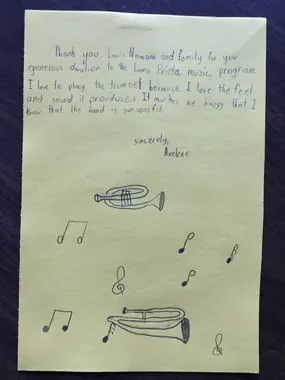 Thank you, Niemann and family for your
generous donation to the Loma Prieta music program.
I love to play the trumpet because I love the feel
and sound it produces. It makes me happy that I
know that the band is successful.
sincerely,